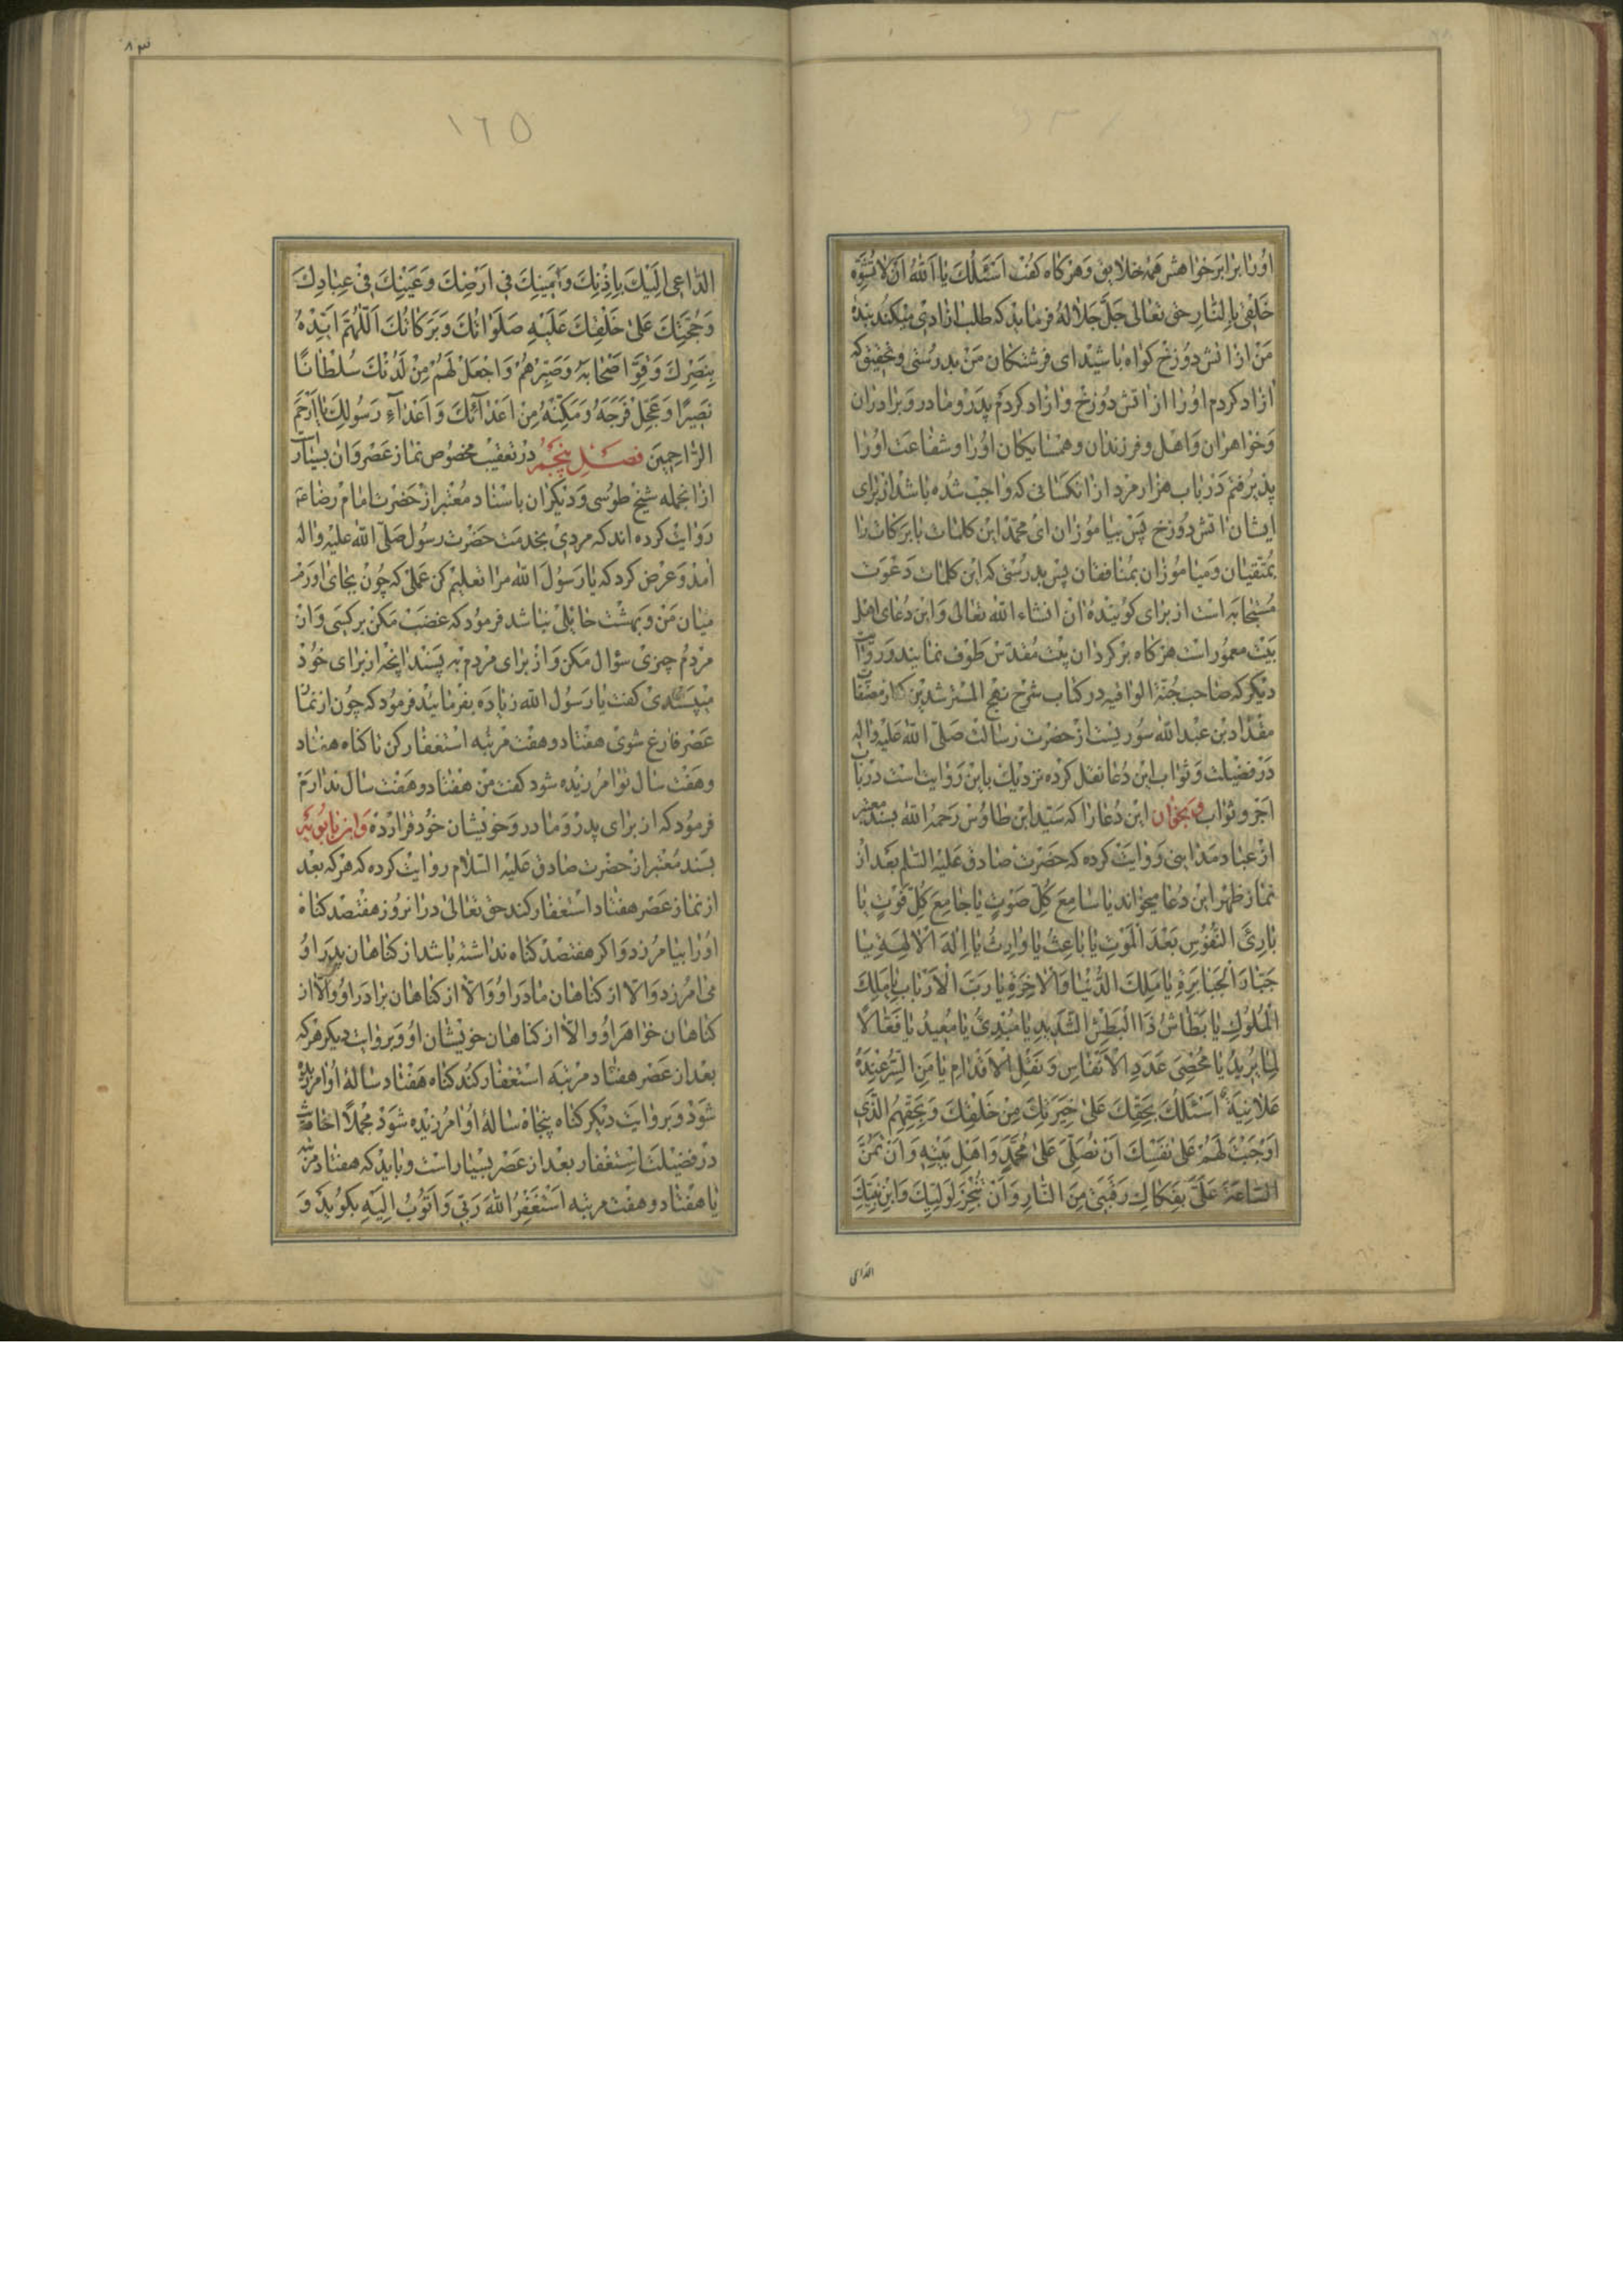 اورا برابر خواهش همه خلایق و هرکاه کفت اسئلک یا الله ان لا تشوه
خلقی بالنار حق تعالی جل جلاله فرماید که طلب ازادی میکند بنده
من از اتش دوزخ کواه باشید ای فرشتکان من بدرستی و تحقیق که
ازاد کردم اورا از اتش دوزخ و ازاد کردم پدر و مادر و برادران
و خواهران و اهل و فرزندان و همسایکان اورا و شفاعت اورا
پذیرفتم در باب هزار مرد از انکسانی که واجب شده باشد از برای
ایشان اتش دوزخ پس بیاموزان ای محمد این کلمات با برکات را
بمتقیان و میاموزان بمنافقان پس بدرستی که این کلمات دعوت
مستجابه است از برای کوینده ان انشاء الله تعالی و این دعای اهل
بیت معمور است هرکاه برکردان بیت مقدس طوف نمایند و روایت
دیکر که صاحب جنة الوافیه در کتاب شرح نهج المسترشدین که از مصنفات
مقداد بن عبد الله سوریست از حضرت رسالت صلی الله علیه واله
در فضیلت و ثواب این دعا نقل کرده نزدیک باین روایت است در باب
اجر و ثواب و بخوان این دعا را که سید ابن طاوس رحمه الله بسند معتبر
از عباد مداینی روایت کرده که حضرت صادق علیه السلم بعد از
نماز ظهر این دعا میخواند یا سامع کل صوت یا جامع کل فوت یا
بارئ النفوس بعد الموت یا باعث یا وارث یا اله الالهة یا
جبار الجبابرة یا ملک الدنیا والاخرة یا رب الارباب یا ملک
الملوک یا بطاش ذا البطش الشدید یا مبدئ یا معید یا فعالا
لما یرید یا محصی عدد الانفاس و نقل الاقدام یا من السر عنده
علانیة اسئلک بحقک علی خیرتک من خلقک و بحقهم الذی
اوجبت لهم علی نفسک ان تصلی علی محمد و اهل بیته و ان تمن
الساعة علی بفکاک رقبتی من النار و ان تنجز لولیک و ابن نبیک
الداعی
٨٣
١٦٥
الداعی الیک باذنک و امینک فی ارضک و عینک فی عبادک
و حجتک علی خلقک علیه صلواتک و برکاتک اللهم ایده
بنصرک و قو اصحابه و صبرهم و اجعل لهم من لدنک سلطانا
نصیرا و عجل فرجه و مکنه من اعدائک و اعداء رسولک یا ارحم
الراحمین فصل پنجم در تعقیب مخصوص نماز عصر و ان بسیار
ازانجمله شیخ طوسی و دیکران باسناد معتبر از حضرت امام رضا
روایت کرده اند که مردی بخدمت حضرت رسول صلی الله علیه واله
امد و عرض کرد که یا رسول الله مرا تعلیم کن عملی که چون بجای اورم
میان من و بهشت حایلی نباشد فرمود که غضب مکن بر کسی و از
مردم چیزی سؤال مکن و از برای مردم به پسند انچه از برای خود
میپسندی کفت یا رسول الله زیاده بفرمائید فرمود که چون از نماز
عصر فارغ شوی هفتاد و هفت مرتبه استغفار کن تا کناه هفتاد
و هفت سال تو امرزیده شود کفت من هفتاد و هفت سال ندارم
فرمود که از برای پدر و مادر و خویشان خود قرار ده و ابن بابویه
بسند معتبر از حضرت صادق علیه السلام روایت کرده که هرکه بعد
از نماز عصر هفتاد استغفار کند حق تعالی در انروز هفتصد کناه
اورا بیامرزد و اکر هفتصد کناه نداشته باشد از کناهان پدر او
می امرزد والا از کناهان مادر او والا از کناهان برادر او والا از
کناهان خواهر او والا از کناهان خویشان او و بروایت دیکر هرکه
بعد از عصر هفتاد مرتبه استغفار کند کناه هفتاد ساله او امرزیده
شود و بروایت دیکر کناه پنجاه ساله او امرزیده شود مجملا احادیث
در فضیلت استغفار بعد از عصر بسیار است و باید که هفتاد مرتبه
یا هفتاد و هفت مرتبه استغفر الله ربی و اتوب الیه بکوید و